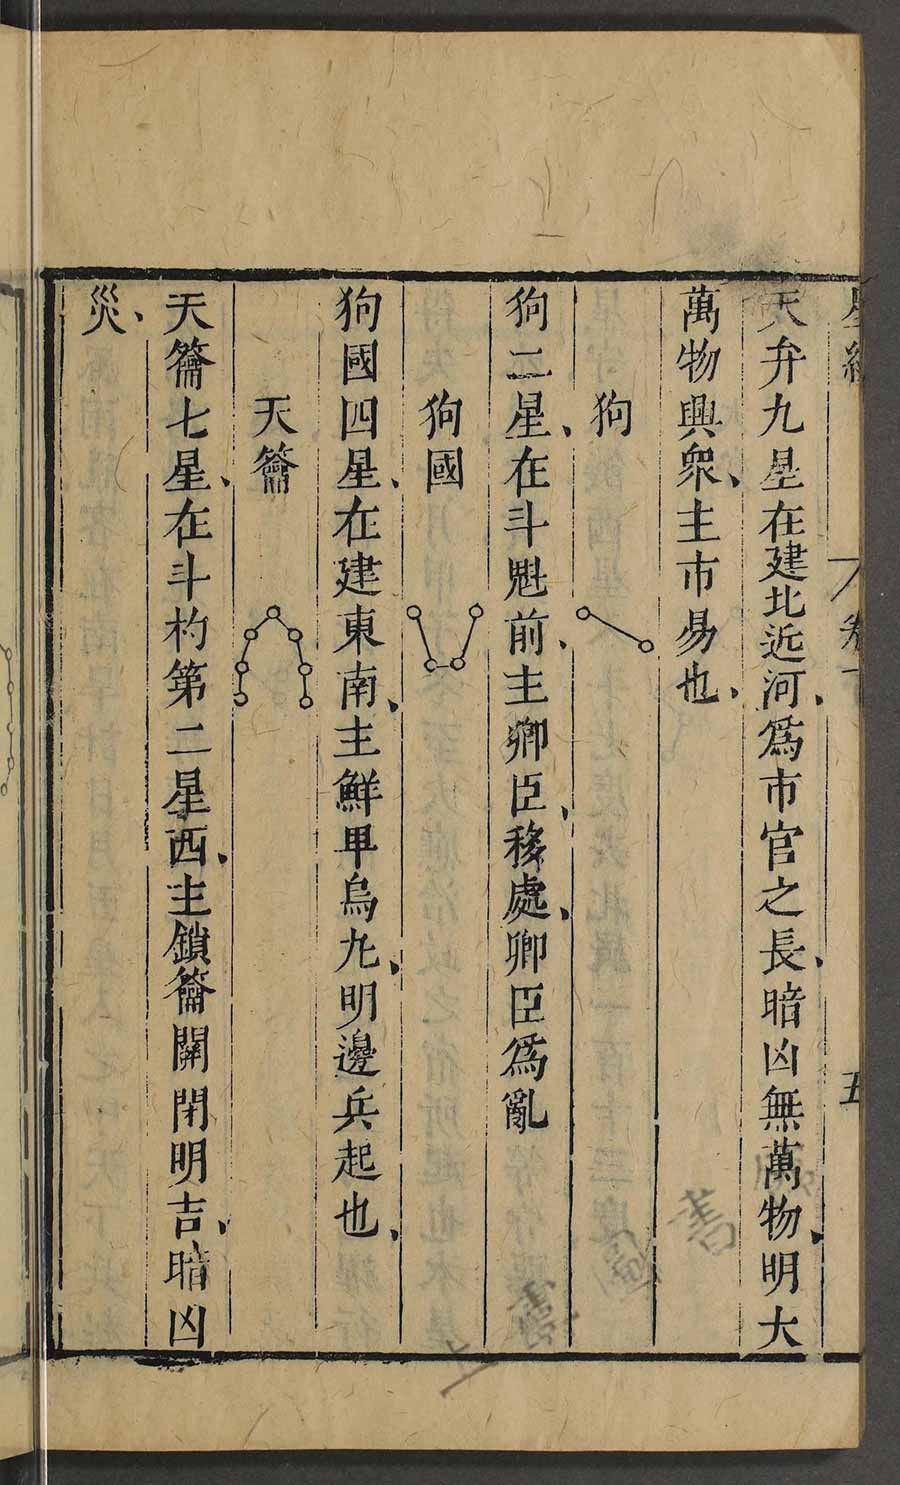 星經
卷下
五
天弁九星在建北近河、爲市官之長、暗凶無萬物、明大
萬物興衆、主市易也、
狗
狗二星、在斗魁前、主卿臣、移處、卿臣爲亂
狗國
狗國四星、在建東南、主鮮卑烏丸、明邊兵起也、
天籥
天籥七星、在斗杓第二星西、主鎖籥關閉明吉、暗凶
災、